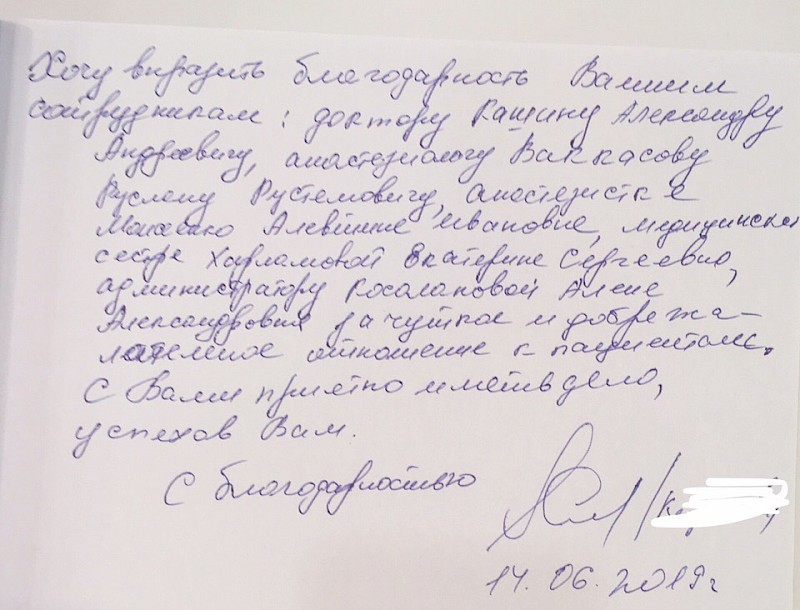 Хочу выразить благодарность Вашим
сотрудникам: доктору Кашину Александру
Андреевичу, анастезиологу Ваккасову
Руслану Рустемовичу, анастезистке
Алевтине Ивановне, медицинской
сестре Харламовой Екатерине Сергеевне,
администратору Алене
Александровне за чуткое и доброжа-
лательное отношение к пациентам.
С Вами приятно иметь дело,
успехов Вам.
С благодарностью
14.06.2019г